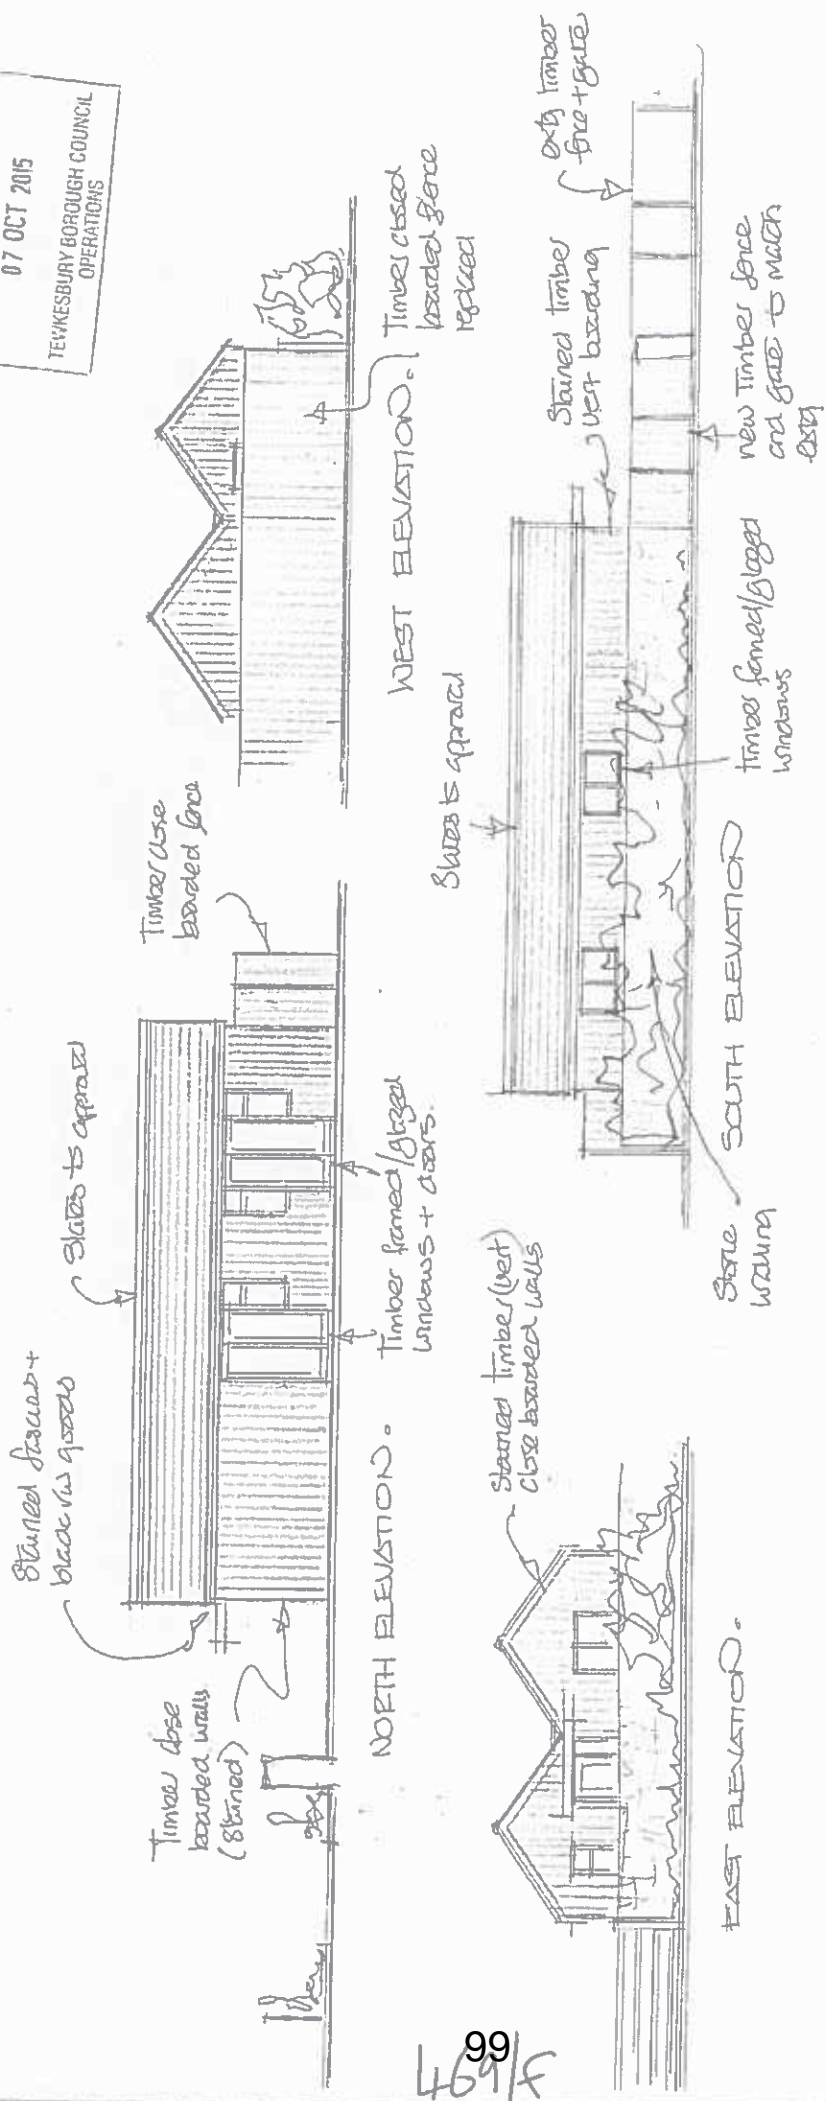 07 OCT 2015
TEWKESBURY BOROUGH COUNCIL
OPERATIONS
Stained fascias +
black r/w goods
Slates to approval
Timber close
boarded fence
Timber close
boarded walls
(Stained)
Timber framed/glazed
windows + doors.
NORTH ELEVATION.
WEST ELEVATION.
Timber closed
boarded fence
replaced
Stained timber (vert)
close boarded walls
EAST ELEVATION.
Slates to approval
Stained timber
vert boarding
extg timber
fence + gate
Stone
walling
SOUTH ELEVATION
timber framed/glazed
windows
new timber fence
and gate to match
extg
99
469/F